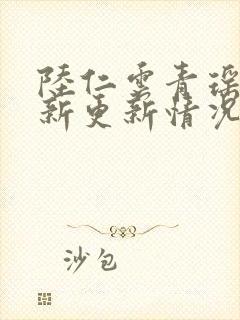 陸仁雲青瑶
新更新情况
沙包